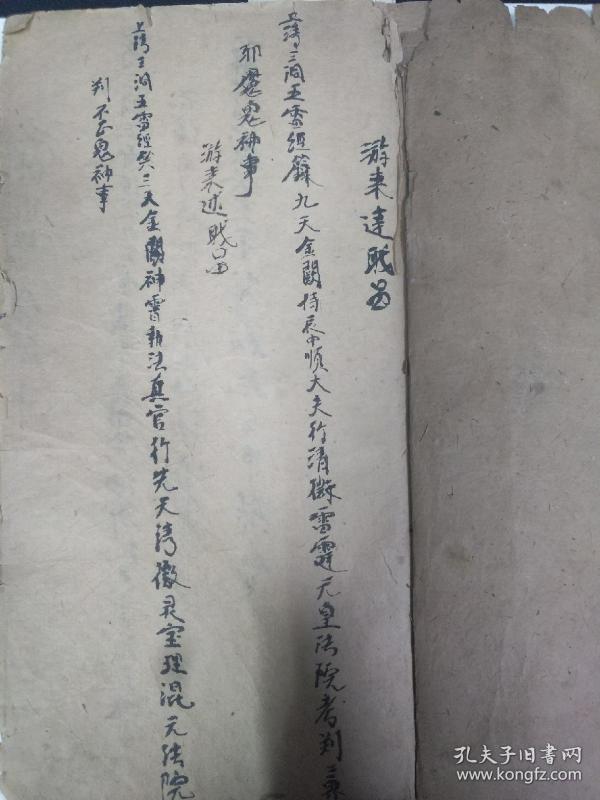 游来達職另
上清三洞五雷經籙九天金闕侍辰中順大夫行清微雷霆元皇法院考判三界
邪魔鬼神事
游来述職另
上清三洞五雷經籙三天金闕神霄執法真官行先天清微灵宝理混元法院
判不正鬼神事
孔夫子旧书网
www.kongfz.com